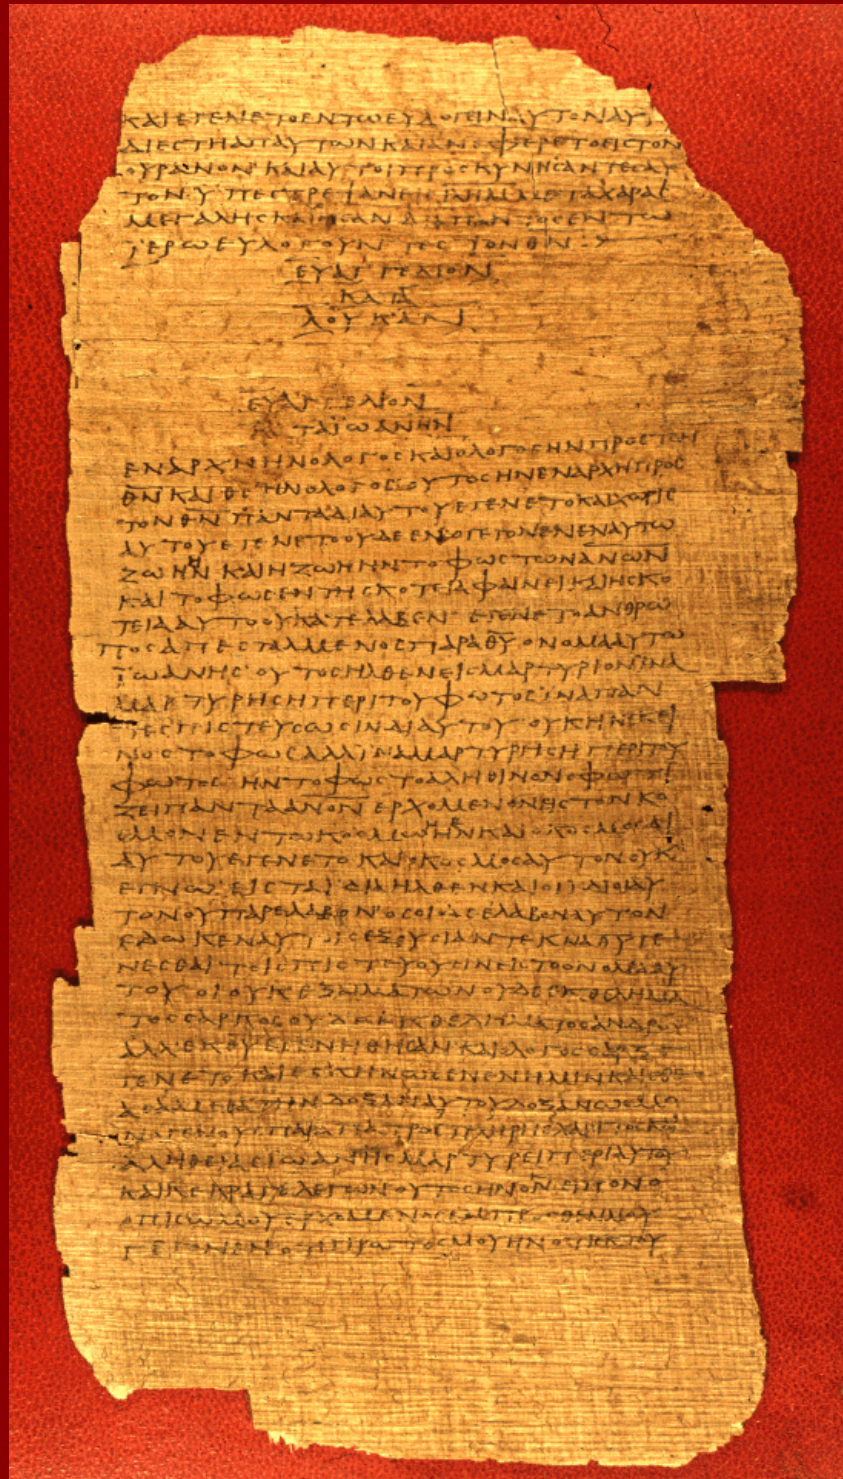 ΚΑΙΕΓΕΝΕΤΟΕΝΤΩΕΥΛΟΓΕΙΝΑΥΤΟΝΑΥ
ΔΙΕϹΤΗΑΠΑΥΤΩΝΚΑΙΑΝΕΦΕΡΕΤΟΕΙϹΤΟΝ
ΟΥΡΑΝΟΝΚΑΙΑΥΤΟΙΠΡΟϹΚΥΝΗϹΑΝΤΕϹΑΥ
ΤΟΝΥΠΕϹΤΡΕΨΑΝΕΙϹΙΛΗΜΜΕΤΑΧΑΡΑϹ
ΜΕΓΑΛΗϹΚΑΙΗϹΑΝΔΙΑΠΑΝΤΟϹΕΝΤΩ
ΪΕΡΩΕΥΛΟΓΟΥΝΤΕϹΤΟΝΘ̅Ν̅
ΕΥΑΓΓΕΛΙΟΝ
ΚΑΤΑ
ΛΟΥΚΑΝ
ΕΥΑΓΓΕΛΙΟΝ
ΚΑΤΑΪΩΑΝΗΝ
ΕΝΑΡΧΗΗΝΟΛΟΓΟϹΚΑΙΟΛΟΓΟϹΗΝΠΡΟϹΤΟΝ
Θ̅Ν̅ΚΑΙΘ̅Ϲ̅ΗΝΟΛΟΓΟϹΟΥΤΟϹΗΝΕΝΑΡΧΗΠΡΟϹ
ΤΟΝΘ̅Ν̅ΠΑΝΤΑΔΙΑΥΤΟΥΕΓΕΝΕΤΟΚΑΙΧΩΡΙϹ
ΑΥΤΟΥΕΓΕΝΕΤΟΟΥΔΕΕΝΟΓΕΓΟΝΕΝΕΝΑΥΤΩ
ΖΩΗΗΝΚΑΙΗΖΩΗΗΝΤΟΦΩϹΤΩΝΑ̅Ν̅Ω̅Ν̅
ΚΑΙΤΟΦΩϹΕΝΤΗϹΚΟΤΕΙΑΦΑΙΝΕΙΚΑΙΗϹΚΟ
ΤΕΙΑΑΥΤΟΟΥΚΑΤΕΛΑΒΕΝΕΓΕΝΕΤΟΑΝΘΡΩ
ΠΟϹΑΠΕϹΤΑΛΜΕΝΟϹΠΑΡΑΘ̅Υ̅ΟΝΟΜΑΑΥΤΩ
ΪΩΑΝΗϹΟΥΤΟϹΗΛΘΕΝΕΙϹΜΑΡΤΥΡΙΟΝΪΝΑ
ΜΑΡΤΥΡΗϹΗΠΕΡΙΤΟΥΦΩΤΟϹΪΝΑΠΑΝ
ΤΕϹΠΙϹΤΕΥϹΩϹΙΝΔΙΑΥΤΟΥΟΥΚΗΝΕΚΕΙ
ΝΟϹΤΟΦΩϹΑΛΛΪΝΑΜΑΡΤΥΡΗϹΗΠΕΡΙΤΟΥ
ΦΩΤΟϹΗΝΤΟΦΩϹΤΟΑΛΗΘΙΝΟΝΟΦΩΤΙ
ΖΕΙΠΑΝΤΑΑ̅Ν̅Ο̅Ν̅ΕΡΧΟΜΕΝΟΝΕΙϹΤΟΝΚΟ
ϹΜΟΝΕΝΤΩΚΟϹΜΩΗΝΚΑΙΟΚΟϹΜΟϹΔΙ
ΑΥΤΟΥΕΓΕΝΕΤΟΚΑΙΟΚΟϹΜΟϹΑΥΤΟΝΟΥΚ
ΕΓΝΩΕΙϹΤΑΪΔΙΑΗΛΘΕΝΚΑΙΟΙΪΔΙΟΙΑΥ
ΤΟΝΟΥΠΑΡΕΛΑΒΟΝΟϹΟΙΔΕΕΛΑΒΟΝΑΥΤΟΝ
ΕΔΩΚΕΝΑΥΤΟΙϹΕΞΟΥϹΙΑΝΤΕΚΝΑΘ̅Υ̅ΓΕ
ΝΕϹΘΑΙΤΟΙϹΠΙϹΤΕΥΟΥϹΙΝΕΙϹΤΟΟΝΟΜΑΑΥ
ΤΟΥΟΙΟΥΚΕΞΑΙΜΑΤΩΝΟΥΔΕΕΚΘΕΛΗΜΑ
ΤΟϹϹΑΡΚΟϹΟΥΔΕΕΚΘΕΛΗΜΑΤΟϹΑΝΔΡΟϹ
ΑΛΛΕΚΘ̅Υ̅ΕΓΕΝΗΘΗϹΑΝΚΑΙΟΛΟΓΟϹϹΑΡΞΕ
ΓΕΝΕΤΟΚΑΙΕϹΚΗΝΩϹΕΝΕΝΗΜΙΝΚΑΙΕΘΕ
ΑϹΑΜΕΘΑΤΗΝΔΟΞΑΝΑΥΤΟΥΔΟΞΑΝΩϹΜΟ
ΝΟΓΕΝΟΥϹΠΑΡΑΠΑΤΡΟϹΠΛΗΡΗϹΧΑΡΙΤΟϹΚΑΙ
ΑΛΗΘΕΙΑϹΪΩΑΝΗϹΜΑΡΤΥΡΕΙΠΕΡΙΑΥΤΟΥ
ΚΑΙΚΕΚΡΑΓΕΛΕΓΩΝΟΥΤΟϹΗΝΟΝΕΙΠΟΝΟ
ΟΠΙϹΩΜΟΥΕΡΧΟΜΕΝΟϹΕΜΠΡΟϹΘΕΝΜΟΥ
ΓΕΓΟΝΕΝΟΤΙΠΡΩΤΟϹΜΟΥΗΝΟΤΙΕΚΤΟΥ